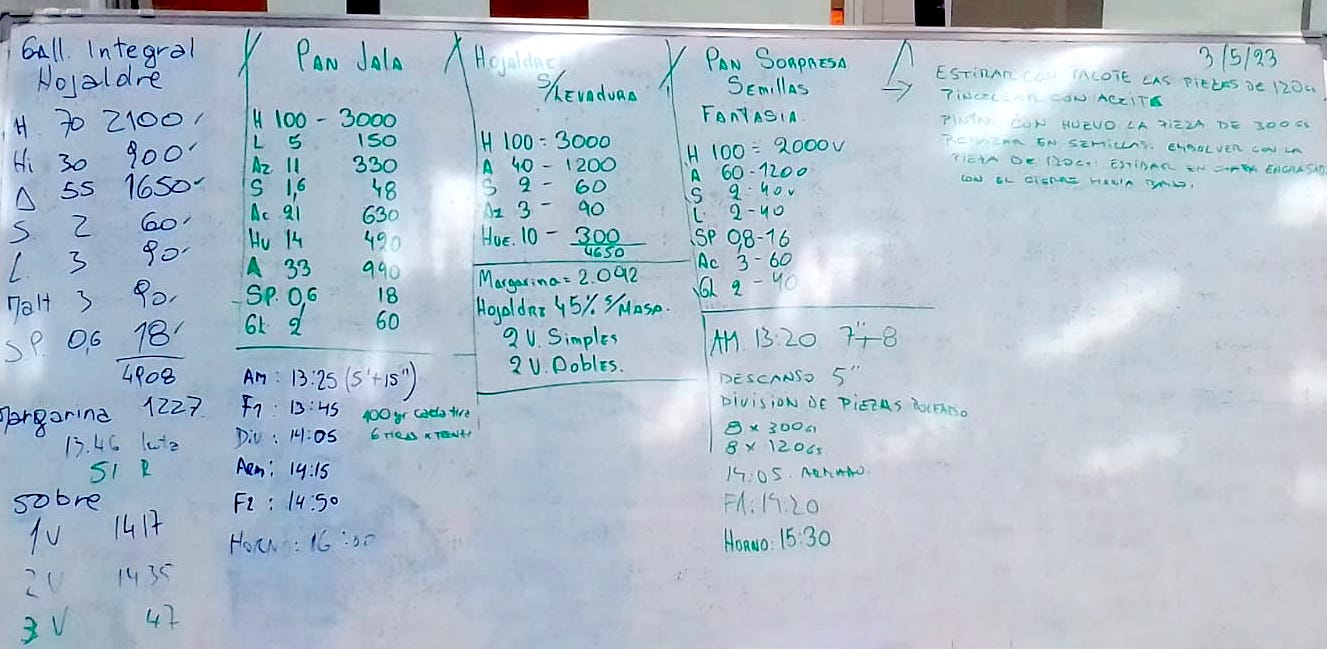 Gall. Integral
Hojaldre
H. 70 2100
Hi 30 900
A 55 1650
S. 2 60
L. 3 90
Malt 3 90
S.P. 0,6 18
4908
Margarina 1227
13.46
sobre
1V 1417
2V 1435
3V 47
PAN JALA
H 100 - 3000
L 5 150
Az 11 330
S 1,6 48
Ac 21 630
Hu 14 420
A 33 990
SP. 0,6 18
Gl. 2 60
AM : 13:25 (5'+15'')
F1 : 13:45
400 gr cada tira
Div : 14:05
6 tiras x
Arm: 14:15
F2 : 14:50
HORNO: 16:00
Hojaldre
S/LEVADURA
H 100 = 3000
A 40 - 1200
S 2 - 60
Az 3 - 90
HUE. 10 - 300
4650
Margarina = 2.092
Hojaldre 45% S/MASA.
2 V. Simples
2 V. Dobles.
PAN SORPRESA
SEMILLAS
FANTASIA.
H 100 = 2000
A 60-1200
S 2-40
L 2-40
SP 0,8-16
Ac 3-60
Gl 2-40
AM. 13:20 7"+8
DESCANSO 5"
DIVISION DE PIEZAS BOLEADO
8 x 300Gr
8 x 120Gr.
14:05. ARMADO.
F1: 14:20
HORNO: 15:30
3/5/23
ESTIRAR CON PALOTE LAS PIEZAS DE 120Gr
PINCELEAR CON ACEITE
PINTAR CON HUEVO LA PIEZA DE 300Gr
REBOZAR EN SEMILLAS. ENVOLVER CON LA
PIEZA DE 120Gr. ESTIBAR EN CHAPA ENGRASADA
CON EL CIERRE HACIA BAJO.